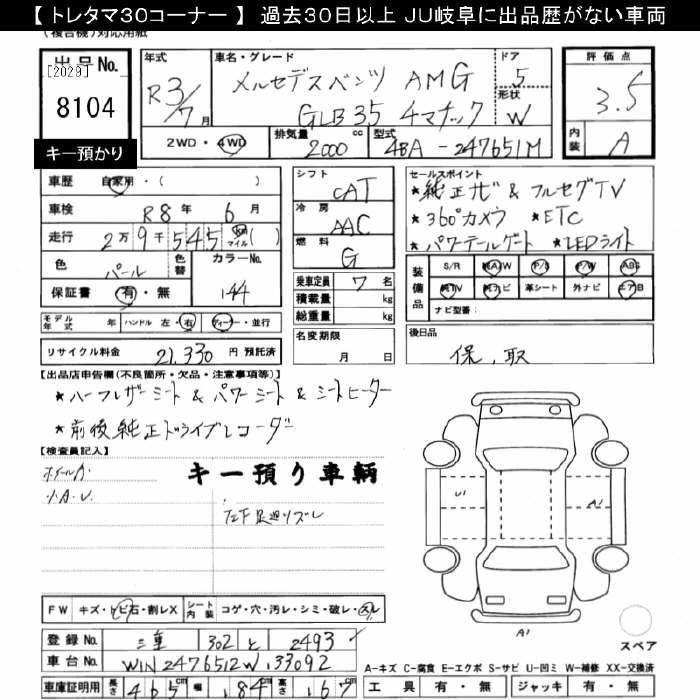 【 トレタマ30コーナー 】 過去30日以上 JU岐阜に出品歴がない車両
(複合機)対応用紙
出品No. [2029] 8104
キー預かり
年式 R3/7月
車名・グレード メルセデスベンツ AMG GLB35 4マチック
ドア 5
形状 W
評価点 3.5
内装 A
2WD・4WD
排気量 2000 cc
型式 4BA-247651M
車歴 自家用・( )
車検 R8年 6月
走行 2万9千545 km マイル( )
色 パール 色替 カラーNo. 144
保証書 有・無
シフト CAT
冷房 AAC
燃料 G
乗車定員 7名
積載量 kg
総重量 kg
名変期限 月 日
セールスポイント
★純正ナビ & フルセグTV
★360°カメラ ★ETC
★パワーテールゲート ★LEDライト
装備品 S/R 純A/W P/S P/W ABS
純TV 純ナビ 革シート 外ナビ エアB
ナビ型番:
モデル年式 年 ハンドル 左・右 ディーラー・並行
リサイクル料金 21,330 円 預託済
後日品 保、取
【出品店申告欄(不良箇所・欠品・注意事項等)】
★ハーフレザーシート & パワーシート & シートヒーター
★前後純正ドライブレコーダー
【検査員記入】
キー預り車輌
ホイールA
U.A.U.
左下足廻りズレ
U1
A1
A1
スペア
FW キズ・ヒビ石・割レX シート内装 コゲ・穴・汚レ・シミ・破レ・スレ
登録No. 三重 302 と 2493
車台No. W1N2476512W133092
車庫証明用 長さ 465cm 幅 184cm 高さ 167
A-キズ C-腐食 E-エクボ S-サビ U-凹ミ W-補修 XX-交換済
工具 有・無 ジャッキ 有・無